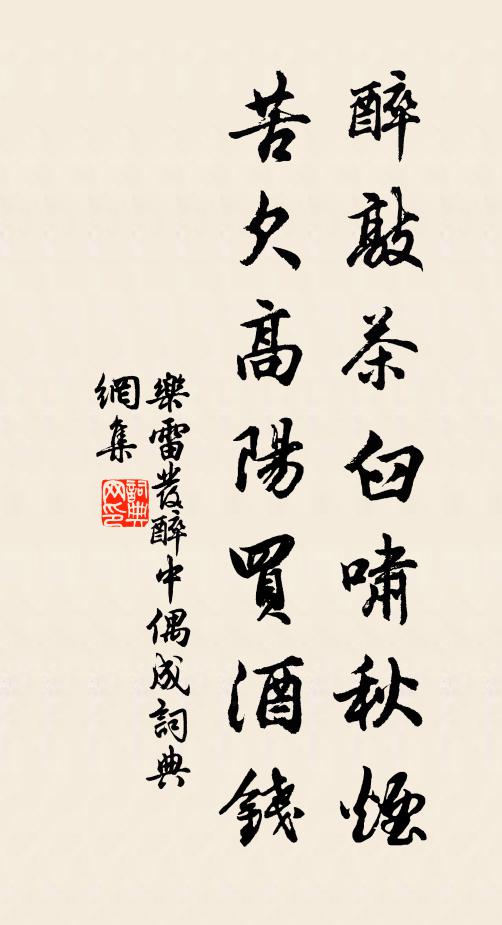 醉敲茶臼嘯秋煙
苦欠高陽買酒錢
樂雷發醉中偶成詞典
網集
詞典
网印